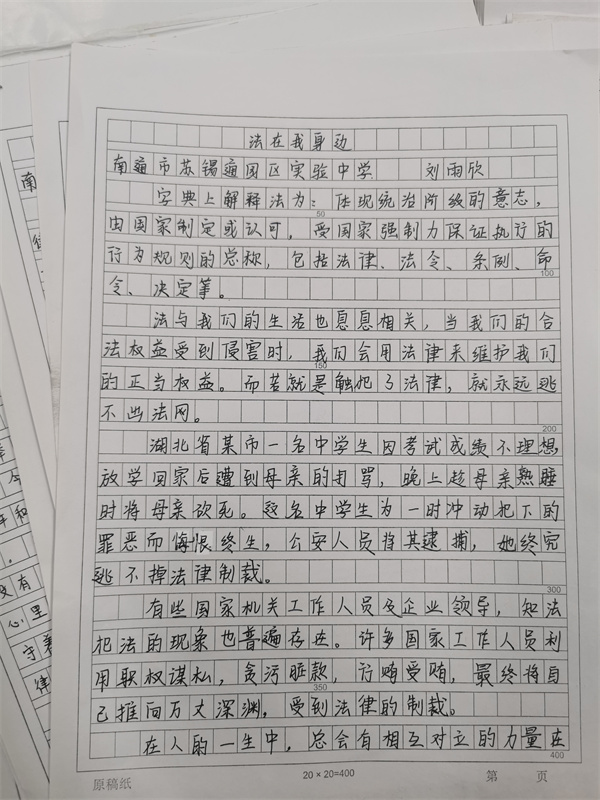 法在我身边
南通市苏锡通园区实验中学 刘雨欣
字典上解释法为：体现统治阶级的意志，
50
由国家制定或认可，受国家强制力保证执行的
行为规则的总称，包括法律、法令、条例、命
100
令、决定等。
法与我们的生活也息息相关，当我们的合
法权益受到侵害时，我们会用法律来维护我们
150
的正当权益。而若就是触犯了法律，就永远逃
不出法网。
200
湖北省某市一名中学生因考试成绩不理想，
放学回家后遭到母亲的打骂，晚上趁母亲熟睡
时将母亲砍死。这名中学生为一时冲动犯下的
罪恶而悔恨终生，公安人员将其逮捕，她终究
逃不掉法律制裁。
300
有些国家机关工作人员及企业领导，知法
犯法的现象也普遍存在。许多国家工作人员利
用职权谋私，贪污赃款，行贿受贿，最终将自
350
己推向万丈深渊，受到法律的制裁。
在人的一生中，总会有相互对立的力量在
400
原稿纸 20×20=400 第 页
南
律
今
和
没有
心里
守
律